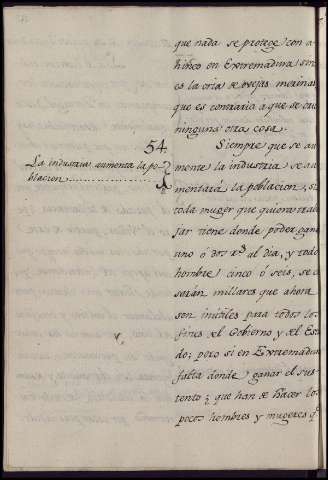 que nada se protege con a-
hinco en Extremadura sino
es la cria de ovejas merinas
que es contrario a que se crie
ninguna otra cosa.
54
La industria aumenta la po-
blacion
Siempre que se au
mente la industria se au
mentará la poblacion, si
toda muger que quiera traba
jar tiene donde poder gana
uno ó dos r.s al dia, y todo
hombre cinco ó seis, se ca
serán millares que ahora
son inútiles para todos los
fines del Gobierno y del Esta
do; pero si en Extremadura
falta donde ganar el sus
tento; que han de hacer los
pocos hombres y mugeres q.e